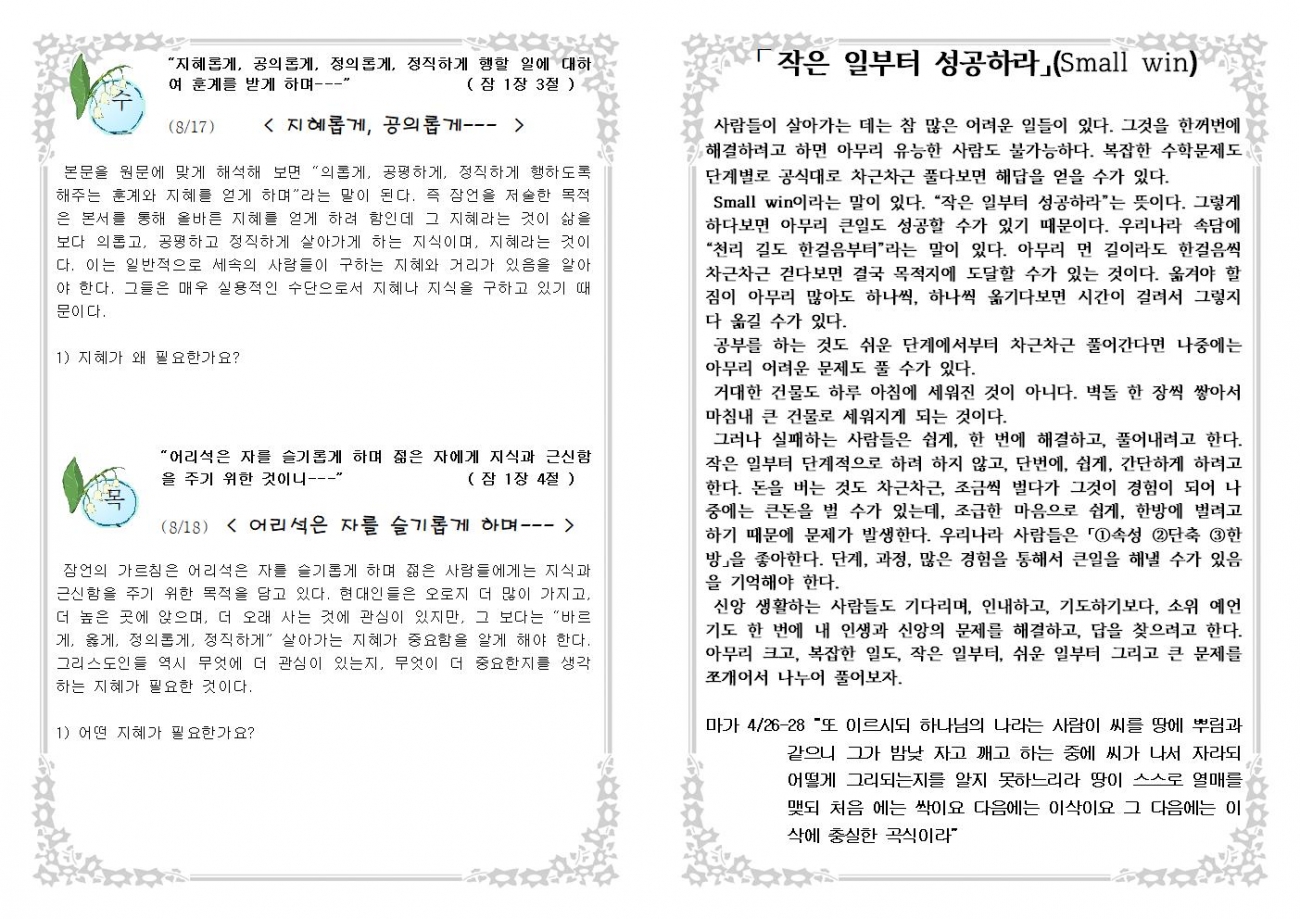 "지혜롭게, 공의롭게, 정의롭게, 정직하게 행할 일에 대하
여 훈계를 받게 하며---" ( 잠 1장 3절 )
수
(8/17) < 지혜롭게, 공의롭게--- >
본문을 원문에 맞게 해석해 보면 "의롭게, 공평하게, 정직하게 행하도록
해주는 훈계와 지혜를 얻게 하며"라는 말이 된다. 즉 잠언을 저술한 목적
은 본서를 통해 올바른 지혜를 얻게 하려 함인데 그 지혜라는 것이 삶을
보다 의롭고, 공평하고 정직하게 살아가게 하는 지식이며, 지혜라는 것이
다. 이는 일반적으로 세속의 사람들이 구하는 지혜와 거리가 있음을 알아
야 한다. 그들은 매우 실용적인 수단으로서 지혜나 지식을 구하고 있기 때
문이다.
1) 지혜가 왜 필요한가요?
"어리석은 자를 슬기롭게 하며 젊은 자에게 지식과 근신함
을 주기 위한 것이니---" ( 잠 1장 4절 )
목
(8/18) < 어리석은 자를 슬기롭게 하며--- >
잠언의 가르침은 어리석은 자를 슬기롭게 하며 젊은 사람들에게는 지식과
근신함을 주기 위한 목적을 담고 있다. 현대인들은 오로지 더 많이 가지고,
더 높은 곳에 앉으며, 더 오래 사는 것에 관심이 있지만, 그 보다는 "바르
게, 옳게, 정의롭게, 정직하게" 살아가는 지혜가 중요함을 알게 해야 한다.
그리스도인들 역시 무엇에 더 관심이 있는지, 무엇이 더 중요한지를 생각
하는 지혜가 필요한 것이다.
1) 어떤 지혜가 필요한가요?
「 작은 일부터 성공하라」(Small win)
사람들이 살아가는 데는 참 많은 어려운 일들이 있다. 그것을 한꺼번에
해결하려고 하면 아무리 유능한 사람도 불가능하다. 복잡한 수학문제도
단계별로 공식대로 차근차근 풀다보면 해답을 얻을 수가 있다.
Small win이라는 말이 있다. "작은 일부터 성공하라"는 뜻이다. 그렇게
하다보면 아무리 큰일도 성공할 수가 있기 때문이다. 우리나라 속담에
"천리 길도 한걸음부터"라는 말이 있다. 아무리 먼 길이라도 한걸음씩
차근차근 걷다보면 결국 목적지에 도달할 수가 있는 것이다. 옮겨야 할
짐이 아무리 많아도 하나씩, 하나씩 옮기다보면 시간이 걸려서 그렇지
다 옮길 수가 있다.
공부를 하는 것도 쉬운 단계에서부터 차근차근 풀어간다면 나중에는
아무리 어려운 문제도 풀 수가 있다.
거대한 건물도 하루 아침에 세워진 것이 아니다. 벽돌 한 장씩 쌓아서
마침내 큰 건물로 세워지게 되는 것이다.
그러나 실패하는 사람들은 쉽게, 한 번에 해결하고, 풀어내려고 한다.
작은 일부터 단계적으로 하려 하지 않고, 단번에, 쉽게, 간단하게 하려고
한다. 돈을 버는 것도 차근차근, 조금씩 벌다가 그것이 경험이 되어 나
중에는 큰돈을 벌 수가 있는데, 조급한 마음으로 쉽게, 한방에 벌려고
하기 때문에 문제가 발생한다. 우리나라 사람들은 「①속성 ②단축 ③한
방」을 좋아한다. 단계, 과정, 많은 경험을 통해서 큰일을 해낼 수가 있음
을 기억해야 한다.
신앙 생활하는 사람들도 기다리며, 인내하고, 기도하기보다, 소위 예언
기도 한 번에 내 인생과 신앙의 문제를 해결하고, 답을 찾으려고 한다.
아무리 크고, 복잡한 일도, 작은 일부터, 쉬운 일부터 그리고 큰 문제를
쪼개어서 나누어 풀어보자.
마가 4/26-28 "또 이르시되 하나님의 나라는 사람이 씨를 땅에 뿌림과
같으니 그가 밤낮 자고 깨고 하는 중에 씨가 나서 자라되
어떻게 그리되는지를 알지 못하느리라 땅이 스스로 열매를
맺되 처음 에는 싹이요 다음에는 이삭이요 그 다음에는 이
삭에 충실한 곡식이라"